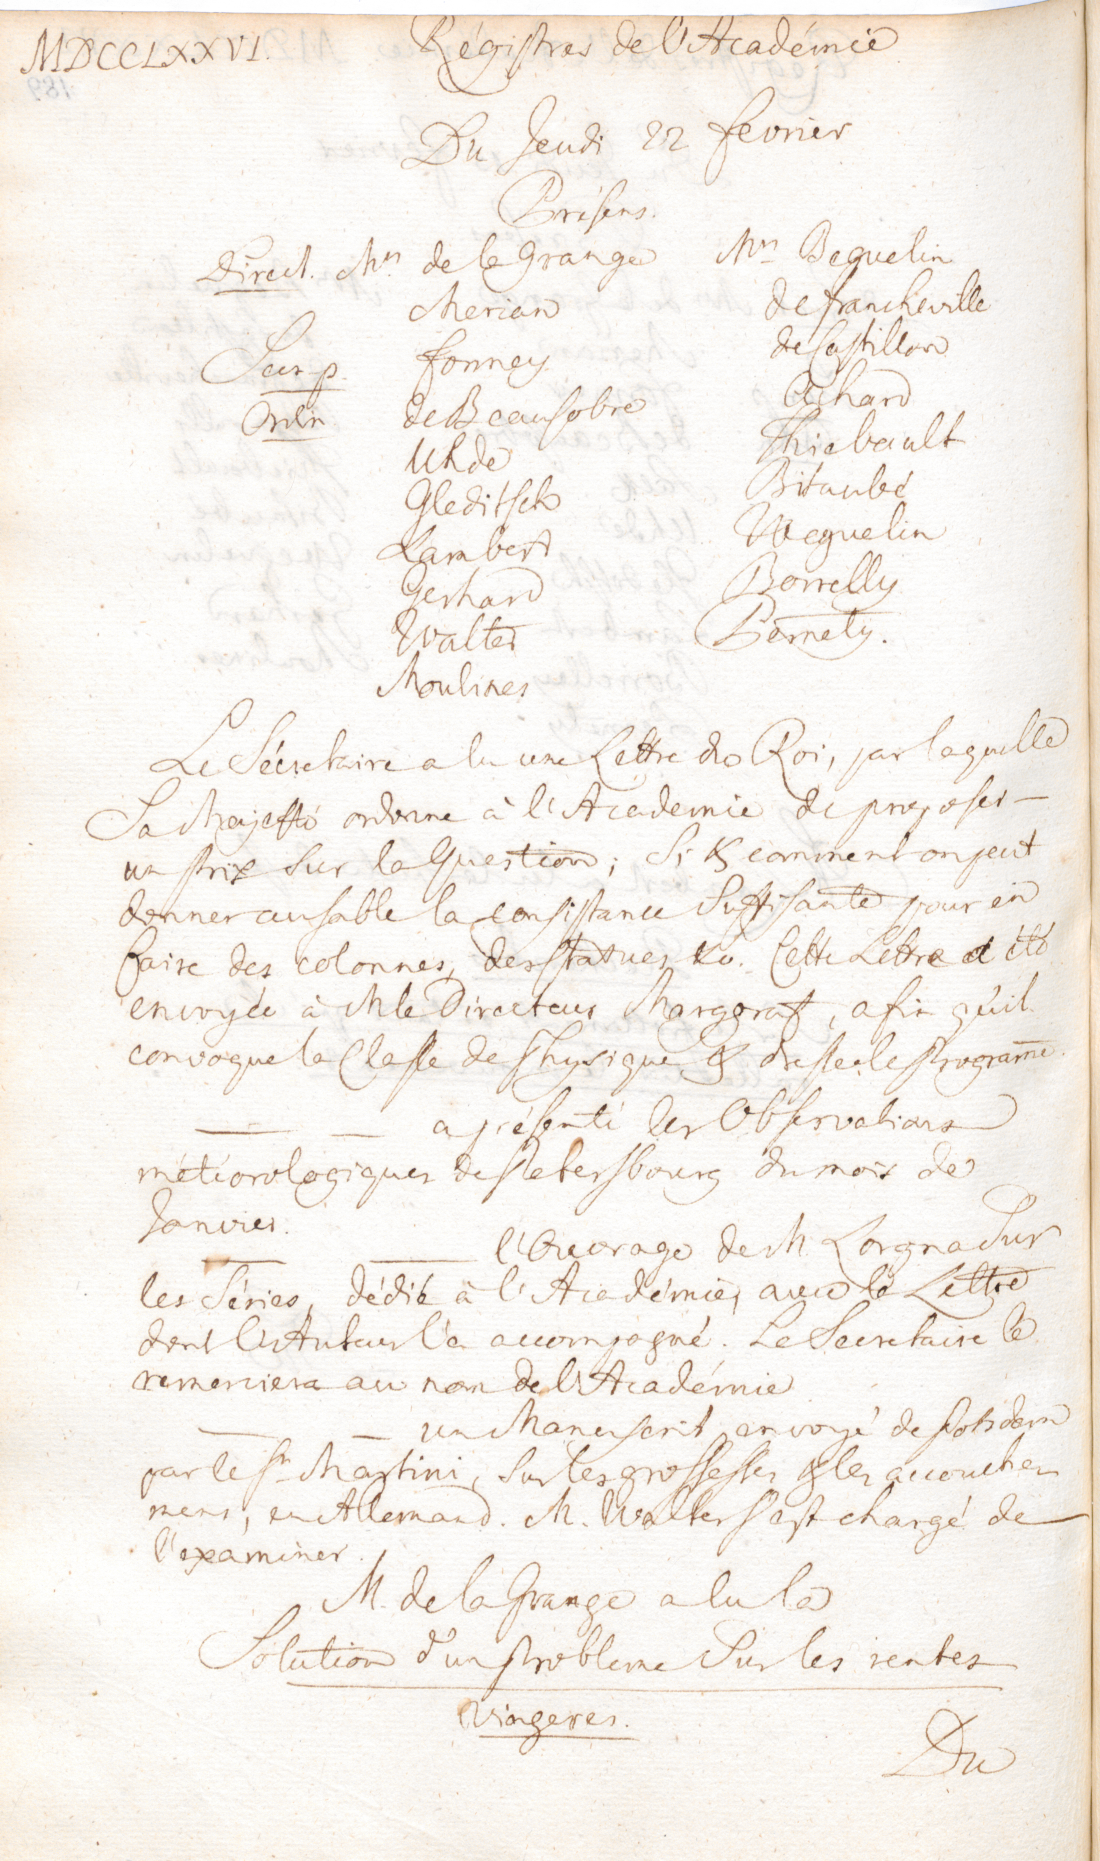 MDCCLXXVI. Régistres de l'Académie
Du Jeudi 22 fevrier
Présens.
Direct. Mrs de la Grange Mrs Beguelin
Merian de francheville
Secr. p. formey de Castillon
Ordin de Beausobre Achard
Uhde Thiebault
Gleditsch Bitaubé
Lambert Weguelin
Gerhard Borrelly
Walter Pernety.
Moulines
Le Sécretaire a lu une Lettre du Roi, par laquelle
Sa Majesté ordonne à l'Academie de proposer
un prix sur la Question; Si & comment on peut
donner au sable la consistance suffisante pour en
faire des colonnes, des statues &c. Cette Lettre a été
envoyée à M. le Directeur Margraf, afin qu'il
convoque la Classe de Physique & dresse le Programe.
— — a présenté les Observations
météorologiques de Petersbourg du mois de
Janvier.
— — l'Ouvrage de M. Lorgna sur
les Séries, dédié à l'Académie, avec la Lettre
dont l'Auteur l'a accompagné. Le Secretaire le
remerciera au nom de l'Académie
— — un Manuscrit envoyé de Potsdam
par le Sr Martini, sur les grossesses & les accouche
mens, en Allemand. M. Walter s'est chargé de
l'examiner.
M. de la Grange a lu la
Solution d'un Probleme sur les rentes
viageres.
Du